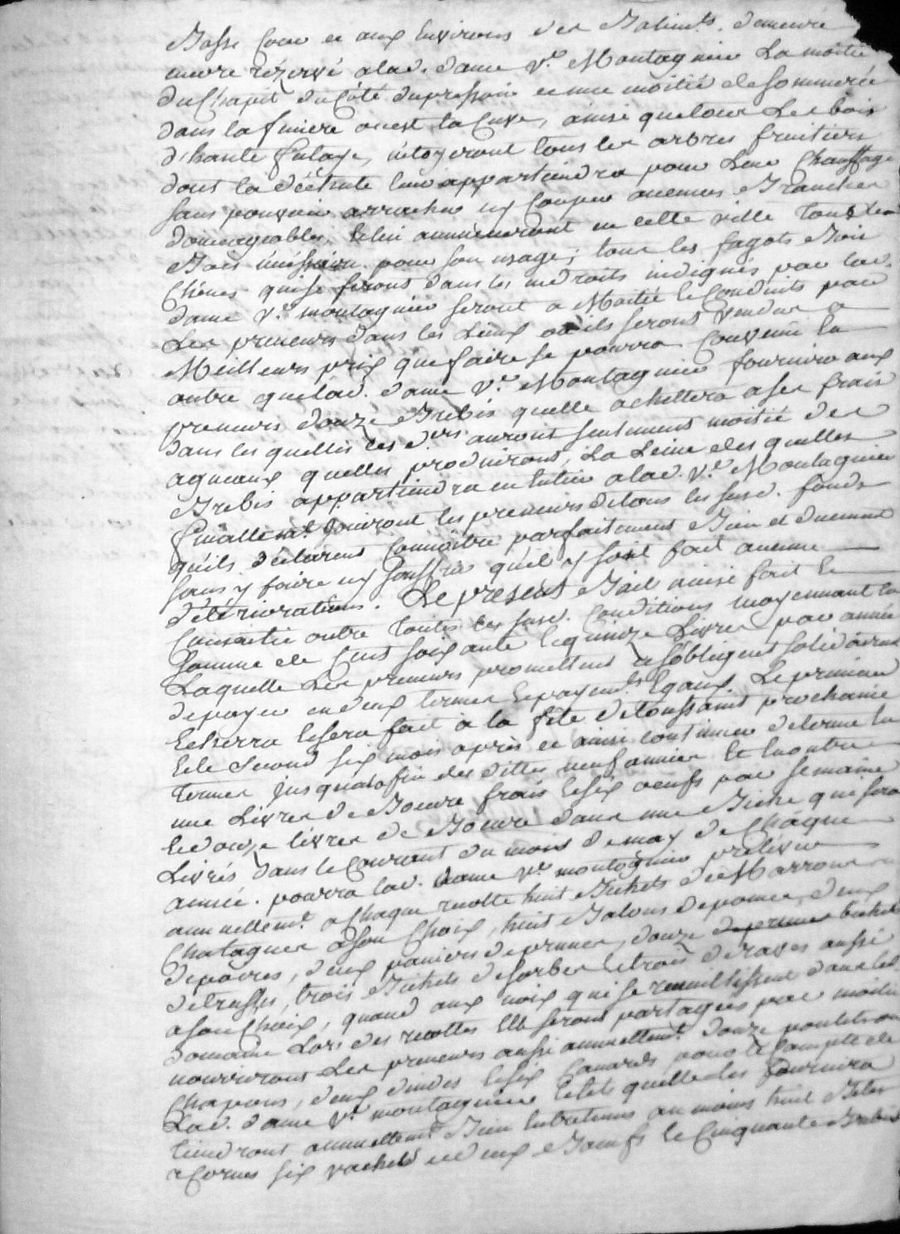 Basse Cour et aux Environs des Batimts. demeure
encore rézervé a lad. dame ve. Montagnier La moitié
du Chapit du Côté du pressoir et une moitié de
dans la ou est la Cuve, ainsi que tous Les bois
d'haute futaye, néttoyeront tous les arbres fruitiers
dont la leur appartiendra pour Leur Chauffage
sans pouvoir arracher ny Couper aucunes Branches
domageables, & lui ammeneront en cette ville tous les
Bois nécéssaire pour son usage; tous les fagots Bois
Chênes qui se feront dans les endroits indiqués par lad.
dame ve. montagnier seront a Moitié & Conduits par
Les preneurs dans les Lieux ou ils seront vendus a
Meilleurs prix que faire se pourra Convenu En
outre que lad. dame ve. Montagnier fournira aux
preneurs douze Brebis quelle achettera a ses frais
dans les quelles les d. auront seulement moitié des
agneaux quelles produiront, La Leine des quelles
Brebis appartiendra en Entier a lad. ve. Montagnier
finallemt. Jouiront les preneurs de tous les susd. fonds
quils déclarent Connoître parfaitement Bien et duement
sans y faire ny souffrir qu'il y soit fait aucune
détériorations. Le present Bail ainsi fait &
Consentie outre toutes les susd. Conditions moyennant la
Somme de Cent soixante & quinze Livres par année
Laquelle Les preneurs promettent & s'obligent solidairemt
de payer en deux termes & payemts. Egaux. Le premier
Echerra & sera fait a la fête de toussaint prochaine
& le Second six mois après et ainsi Continuer de terme En
termes jusqua la fin des dittes neuf années Et En outre
une Livre de Beurre frais & six oeufs par semaine
& douze livres de Beurre dans une Biche que sera
Livrés dans le Courant du mois de may de Chaque
année. pourra lad. dame ve. montagnier prélever
annuellemt. a Chaque recolte huit Bichets de Marrons ou
Chataignes a son Choix, huit de pommes, deux
de poires, deux paniers de prunes, douze bichets
de truffes, trois Bichets de sorbes & trois de raves aussi
a son Choix, quand aux noix qui se receuillissent dans led.
domaine Lors des recoltes Elles seront partagées par moitié
nourriront Les preneurs aussi annuellemt. douze poulets ou
Chapons, deux dindes & six Canards pour le Compte de
Lad. dame ve. montagnier & tels quelle les fournira
tiendront annuellemt. Bien Entretenus au moins huit Bêtes
a Cornes six vaches et deux Boeufs & Cinquante Brebis